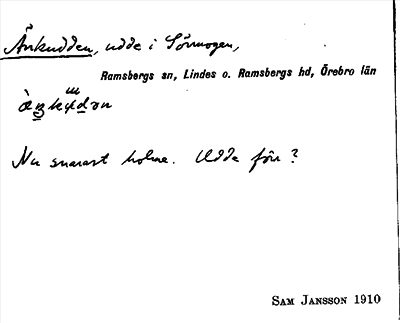 Änkudden, udde i Sörmogen,
Ramsbergs sn, Lindes o. Ramsbergs hd, Örebro län
Nu snarast holme. Udde förr?
SAM JANSSON 1910